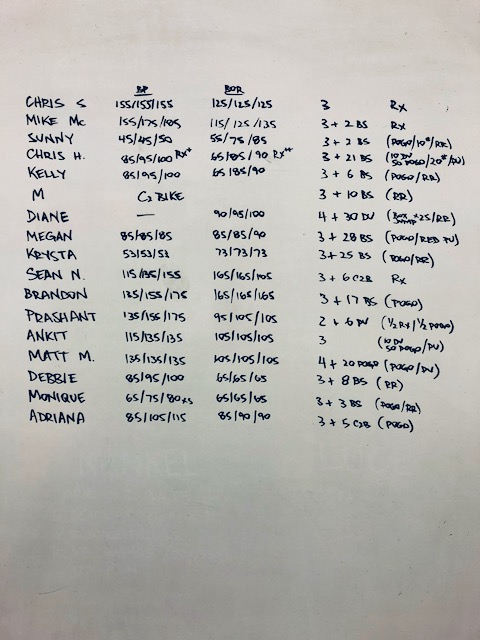 BP BOR
CHRIS S 155/155/155 125/125/125 3 Rx
MIKE Mc 155/175/185 115/125/135 3 + 2 BS Rx
SUNNY 45/45/50 55/75/85 3 + 2 BS (POGO/10#/RR)
CHRIS H. 85/95/100 Rx+ 65/85/90 Rx++ 3 + 21 BS (10 DU 50 POGO/20#/PU)
KELLY 85/95/100 65/85/90 3 + 6 BS (POGO/RR)
M C2 BIKE 3 + 10 BS (RR)
DIANE — 90/95/100 4 + 30 DU (BOX JUMP x25/RR)
MEGAN 85/85/85 85/85/90 3 + 28 BS (POGO/RED PU)
KRYSTA 53/53/53 73/73/73 3 + 25 BS (POGO/RR)
SEAN N. 115/135/155 165/165/165 3 + 6 C2B Rx
BRANDON 135/155/175 165/165/165 3 + 17 BS (POGO)
PRASHANT 135/155/175 95/105/105 2 + 6 DU (1/2 Rx/1/2 POGO)
ANKIT 115/135/135 105/105/105 3 (10 DU 50 POGO/PU)
MATT M. 135/135/135 105/105/105 4 + 20 POGO (POGO/PU)
DEBBIE 85/95/100 65/65/65 3 + 8 BS (RR)
MONIQUE 65/75/80 x5 65/65/65 3 + 3 BS (POGO/RR)
ADRIANA 85/105/115 85/90/90 3 + 5 C2B (POGO)